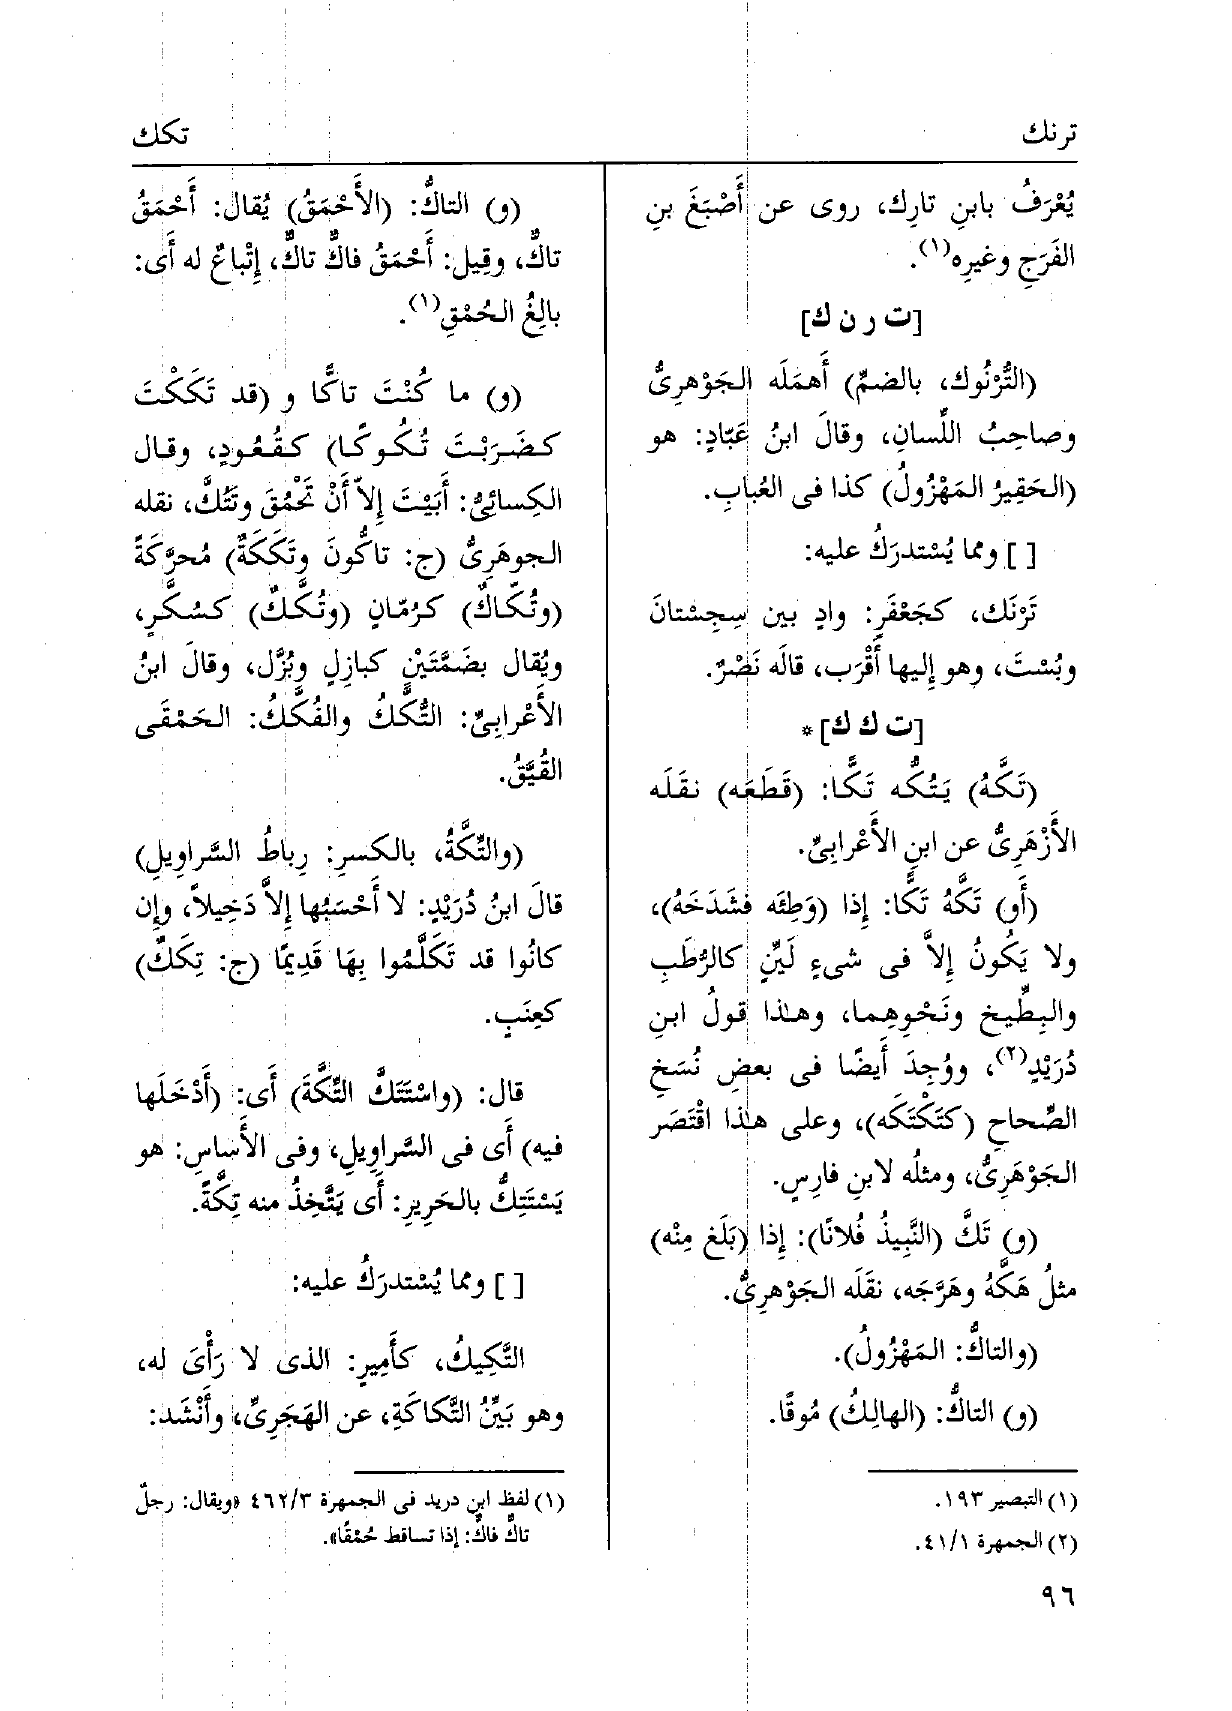 ترنك
تكك
يُعْرَفُ بابنِ تارِك، روى عن أَصْبَغَ بنِ
الفَرَجِ وغيرِه(١).
[ت ر ن ك]
(التُّرْنُوك، بالضمِّ) أَهمَلَه الجَوْهرِىُّ
وصاحِبُ اللّسانِ، وقالَ ابنُ عَبّادٍ: هو
(الحَقِيرُ المَهْزُولُ) كذا فى العُبابِ.
[ ] ومما يُسْتدرَكُ عليه:
تَرْنَك، كجَعْفَرٍ: وادٍ بين سِجِسْتانَ
وبُسْتَ، وهو إِليها أَقْرَب، قالَه نَصْرٌ.
[ت ك ك]*
(تَكَّهُ) يَتُكُّه تَكًّا: (قَطَعَه) نقَلَه
الأَزْهَرِىُّ عن ابنِ الأَعْرابِىِّ.
(أَو) تَكَّهُ تَكًّا: إِذا (وَطِئَه فشَدَخَهُ)،
ولا يَكُونُ إِلاَّ فى شىءٍ لَيِّنٍ كالرُّطَبِ
والبِطِّيخِ ونَحْوِهِما، وهذا قولُ ابنِ
دُرَيْدٍ(٢)، ووُجِدَ أَيضًا فى بعضِ نُسَخِ
الصِّحاحِ (كتَكْتَكَه)، وعلى هذا اقْتَصَر
الجَوْهَرِىُّ، ومثلُه لابنِ فارِسٍ.
(و) تَكَّ (النَّبِيذُ فُلانًا): إِذا (بَلَغ مِنْه)
مثلُ هَكَّهُ وهَرَّجَه، نقَلَه الجَوْهرِىُّ.
(والتاكُّ: المَهْزُولُ).
(و) التاكُّ: (الهالِكُ) مُوقًا.
(١) التبصير ١٩٣.
(٢) الجمهرة ٤١/١.
(و) التاكُّ: (الأَحْمَقُ) يُقالُ: أَحْمَقُ
تاكٌّ، وقِيل: أَحْمَقُ فاكٌّ تاكٌّ، إِتْباعٌ له أَى:
بالِغُ الحُمْقِ(١).
(و) ما كُنْتَ تاكًّا و (قد تَكَكْتَ
كضَرَبْتَ تُكُوكًا) كقُعُودٍ، وقال
الكِسائِىُّ: أَبَيْتَ إِلاّ أَنْ تَحْمُقَ وتَتُكَّ، نقله
الجوهَرِىُّ (ج: تاكُّونَ وتَكَكَةٌ) مُحرَّكَةً
(وتُكّاكٌ) كرُمّانٍ (وتُكَّكٌ) كسُكَّرٍ،
ويُقال بضَمَّتَيْنِ كبازِلٍ وبُزَّل، وقالَ ابنُ
الأَعْرابِىِّ: التُّكَّكُ والفُكَّكُ: الحَمْقَى
القُيَّقُ.
(والتِّكَّةُ، بالكسرِ: رِباطُ السَّراوِيلِ)
قالَ ابنُ دُرَيْدٍ: لا أَحْسَبُها إِلاَّ دَخِيلاً، وإِن
كانُوا قد تَكَلَّمُوا بِهَا قَدِيمًا (ج: تِكَكٌ)
كعِنَبٍ.
قال: (واسْتَتَكَّ التِّكَّةَ) أَى: (أَدْخَلَها
فيه) أَى فى السَّراوِيلِ، وفى الأَساسِ: هو
يَسْتَتِكُّ بالحَرِيرِ: أَى يَتَّخِذُ منه تِكَّةً.
[ ] ومما يُسْتدرَكُ عليه:
التَّكِيكُ، كأَمِيرٍ: الذى لا رَأْىَ له،
وهو بَيِّنُ التَّكاكَةِ، عن الهَجَرِىِّ، وأَنْشَد:
(١) لفظ ابن دريد فى الجمهرة ٤٦٢/٣ «ويقال: رجلٌ
تاكّ فاكّ: إذا تساقط حُمْقًا».
٩٦